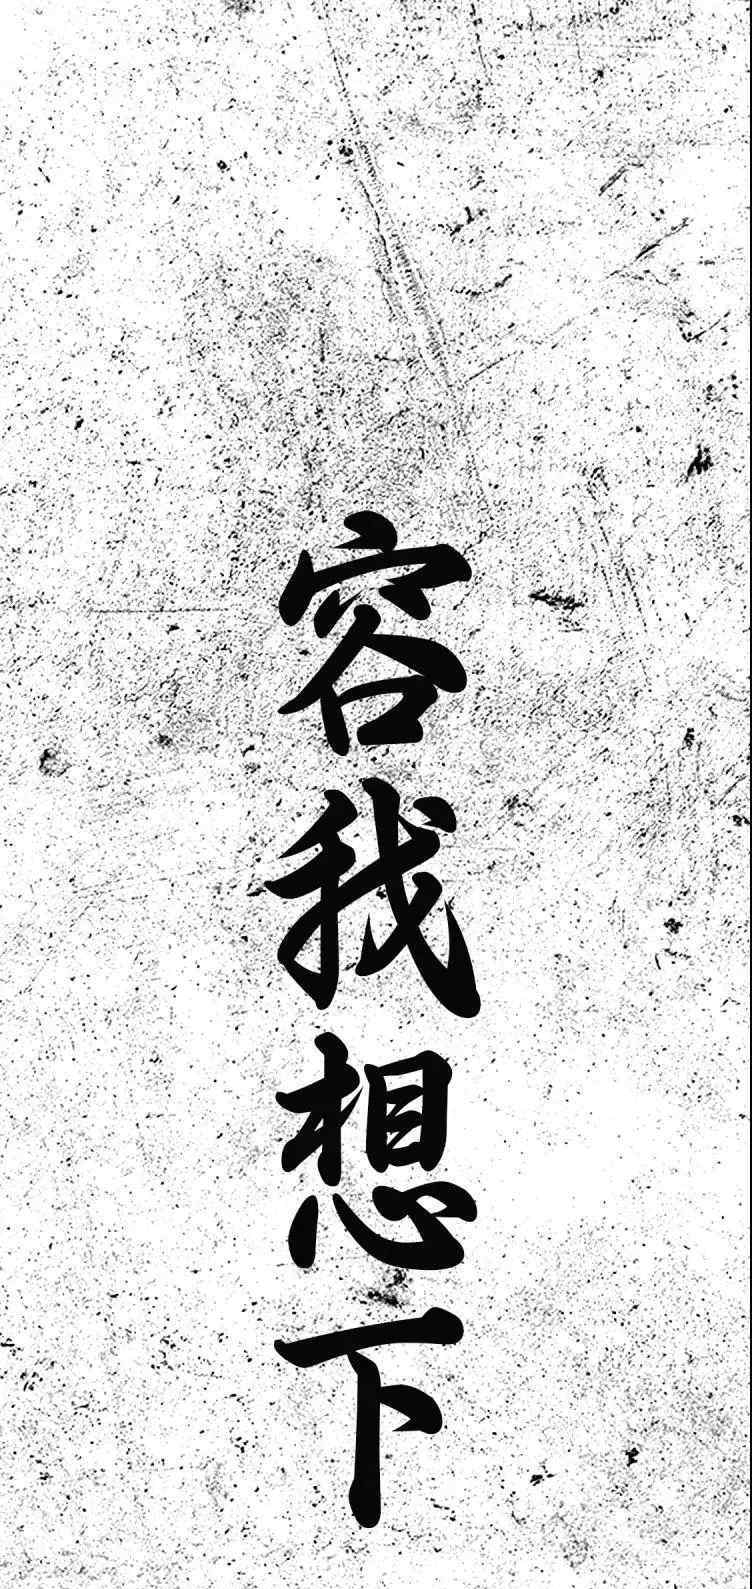 容我想下